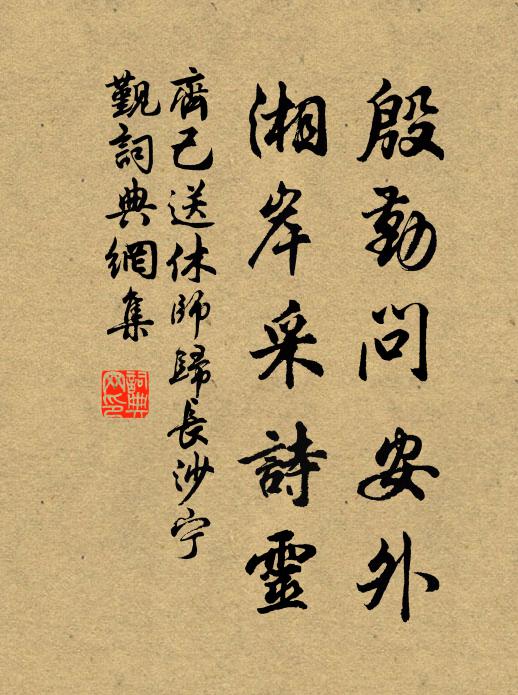 殷勤問安外
湘岸采詩靈
齊己送休師歸長沙宁
觀詞典網集
詞典網印